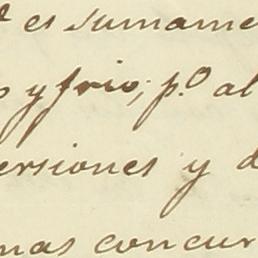 es sumame
y frio; p.º al
ersiones y d
mas concur